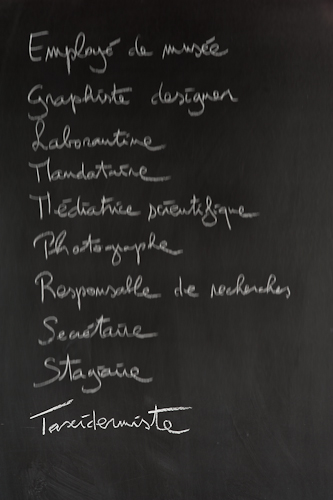 Employé de musée
Graphiste designer
Laborantine
Mandataire
Médiatrice scientifique
Photographe
Responsable de recherches
Secrétaire
Stagiaire
Taxidermiste